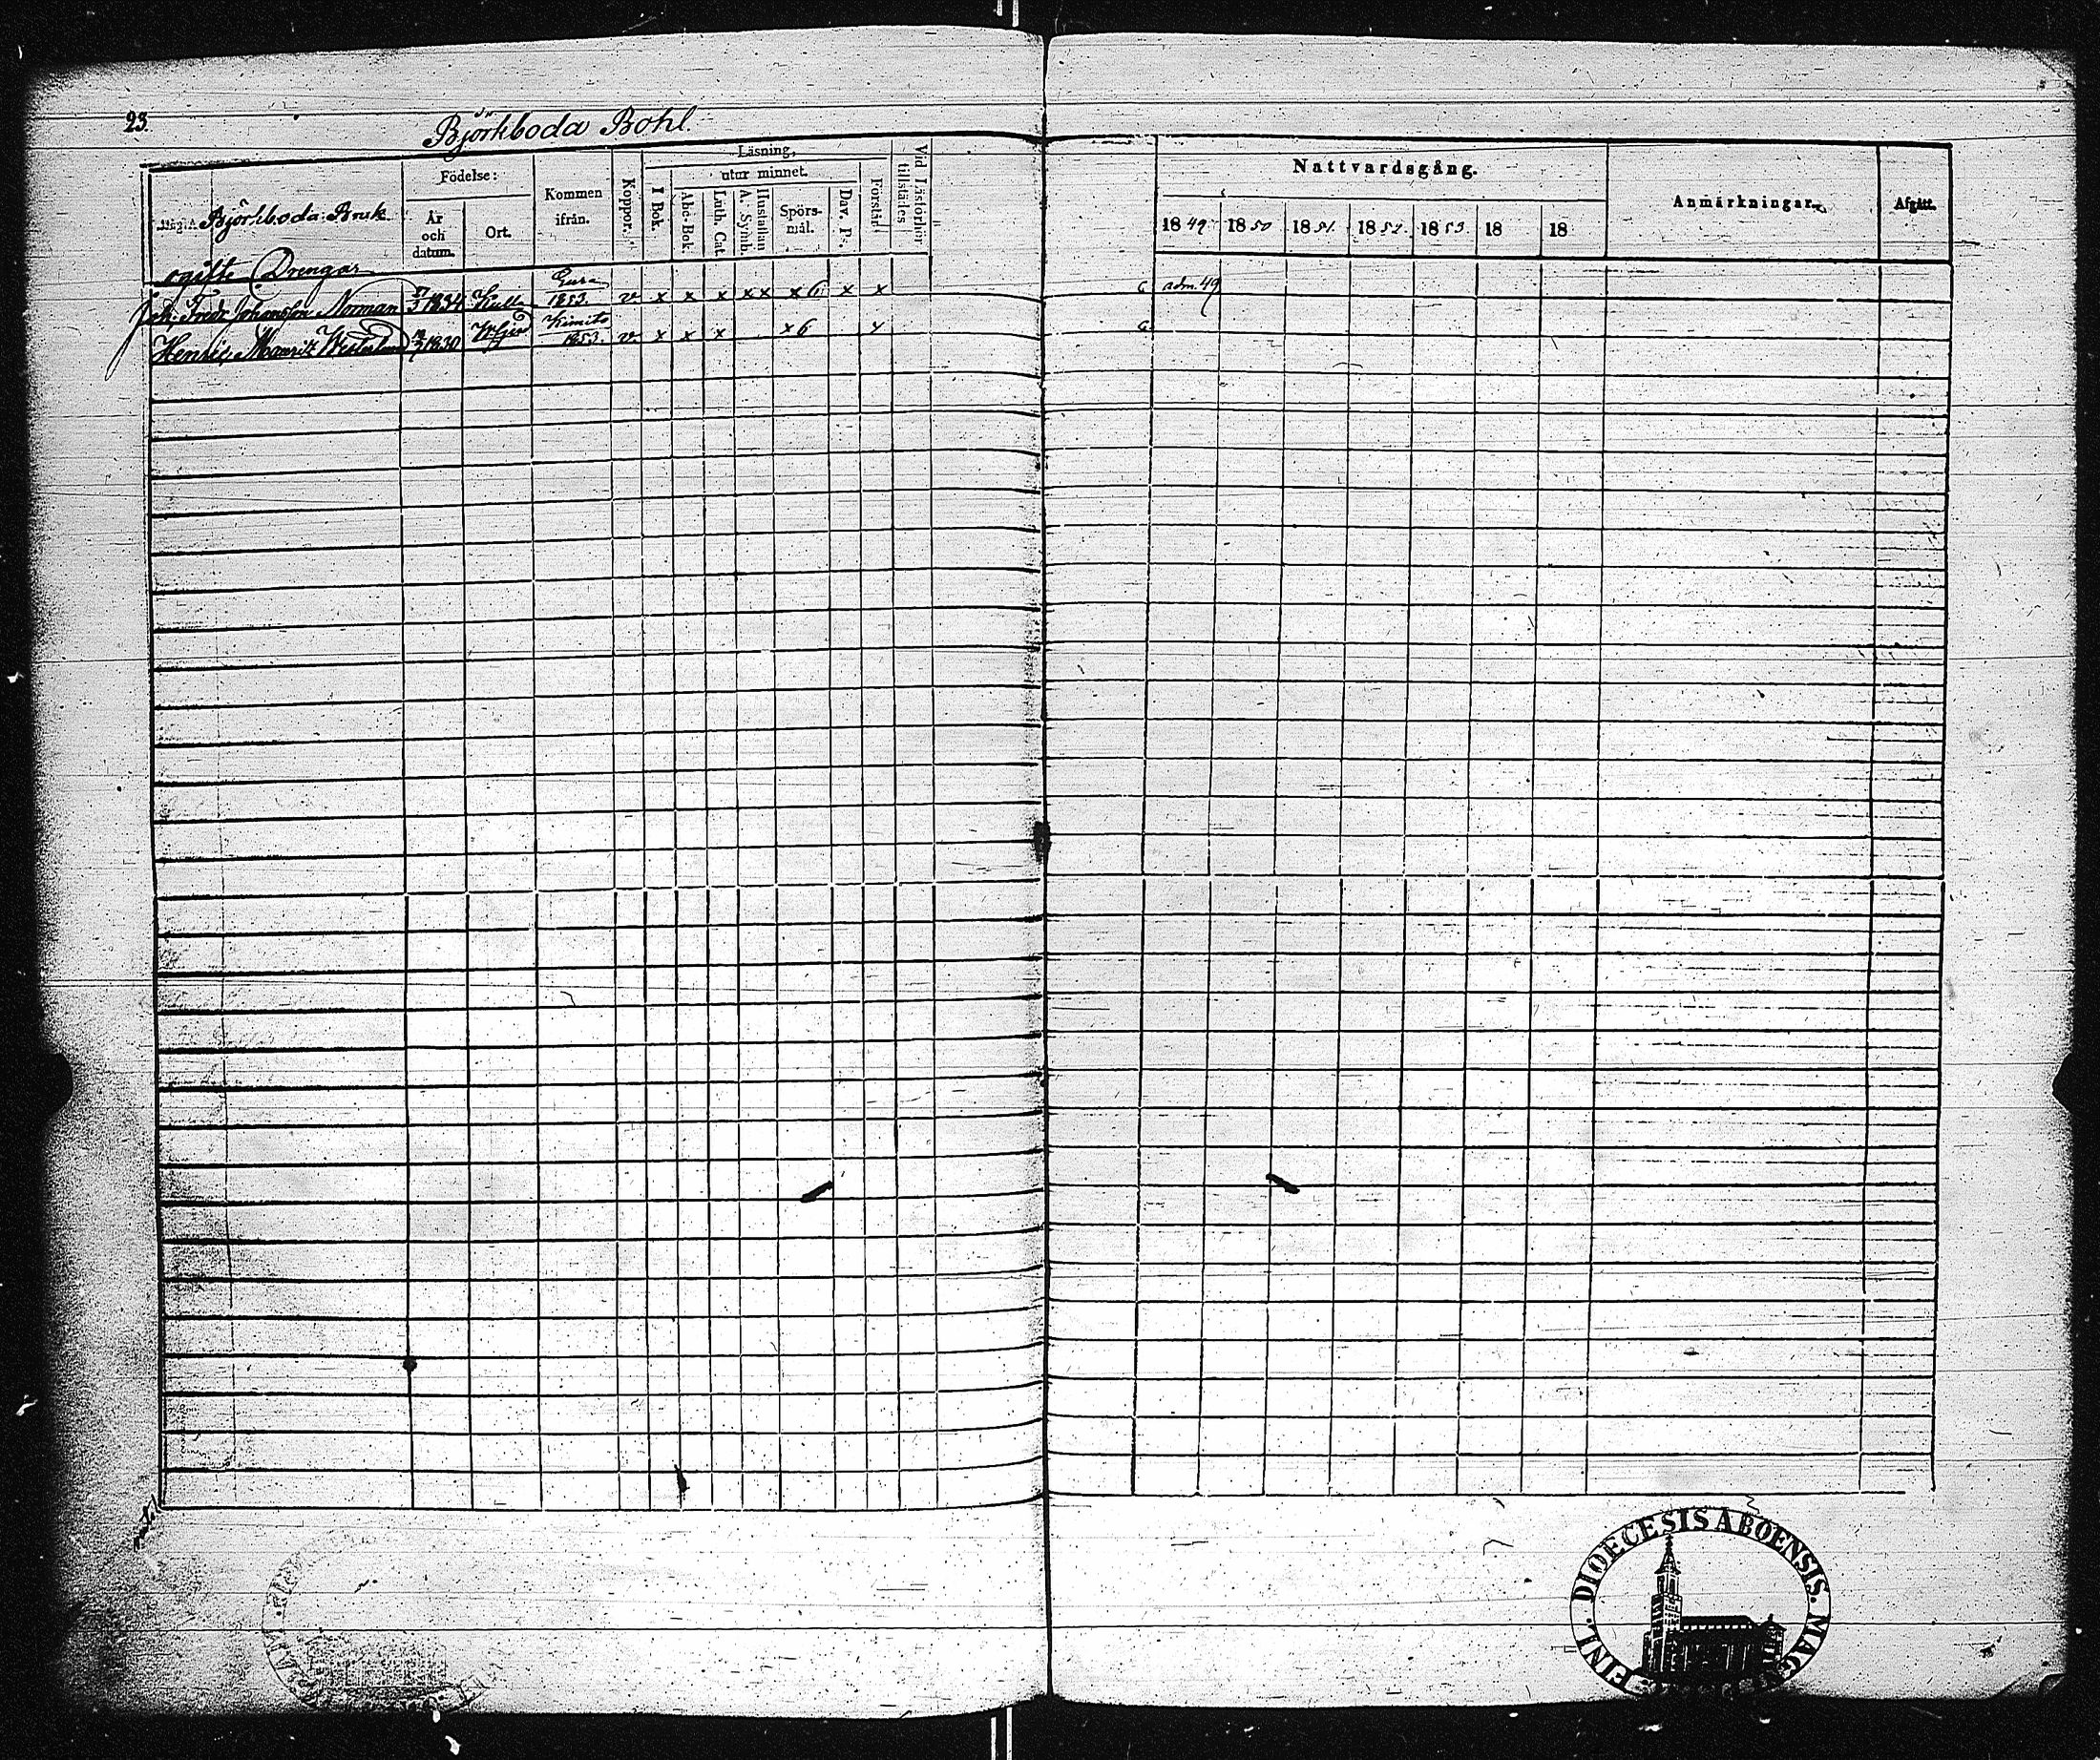 23.
Björkboda Bohl.
Björkboda Bruk
Födelse:
År och datum.
Ort.
Kommen ifrån.
Koppor.
Läsning,
utur minnet.
I Bok.
Abc-Bok
Luth. Cat.
A. Symb.
Hustaflan
Spörs-mål.
Dav. Ps.
Förstår
Vid Läsförhör tillstädes
Nattvardsgång.
1849 1850 1851. 1852. 1853. 18 18
Anmärkningar.
Afgått.
ogifte Drengar
Joh. Fredr. Johansson Norman 1834 Kulla Eura 1853. v x x x x x x 6 x x
adm. 49
Henric Mauritz Westerlund 1830 Kimito 1853. v x x x x 6 x
FINL. DIOECESIS ABOENSIS. MAG